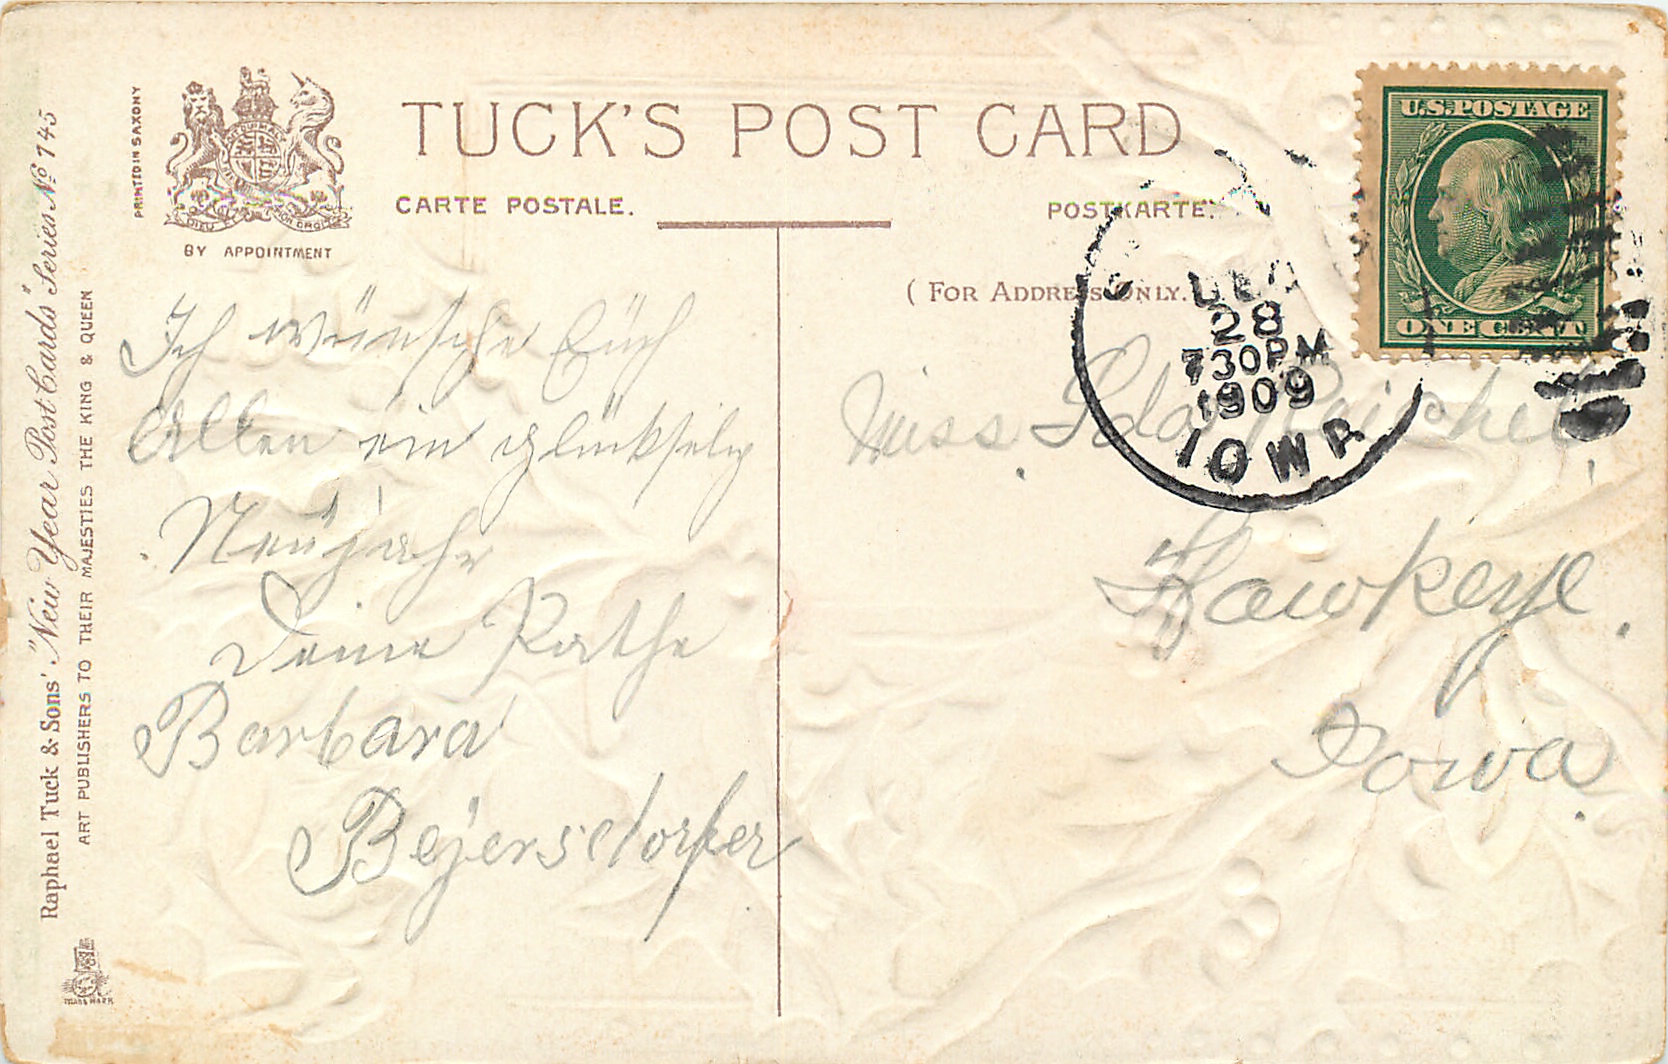 TUCK'S POST CARD
CARTE POSTALE.
POSTKARTE.
(FOR ADDRESS ONLY.
PRINTED IN SAXONY
BY APPOINTMENT
Raphael Tuck & Sons' "New Year Post Cards" Series No 745
ART PUBLISHERS TO THEIR MAJESTIES THE KING & QUEEN
TRADE MARK
U.S. POSTAGE
ONE CENT
DEC
28
730PM
1909
IOWA
Ich wünsche Euch
Allen ein glückselig
Neujahr
Deine Pathe
Barbara
Beyersdorfer
Miss Ida Reichel
Hawkeye.
Iowa.